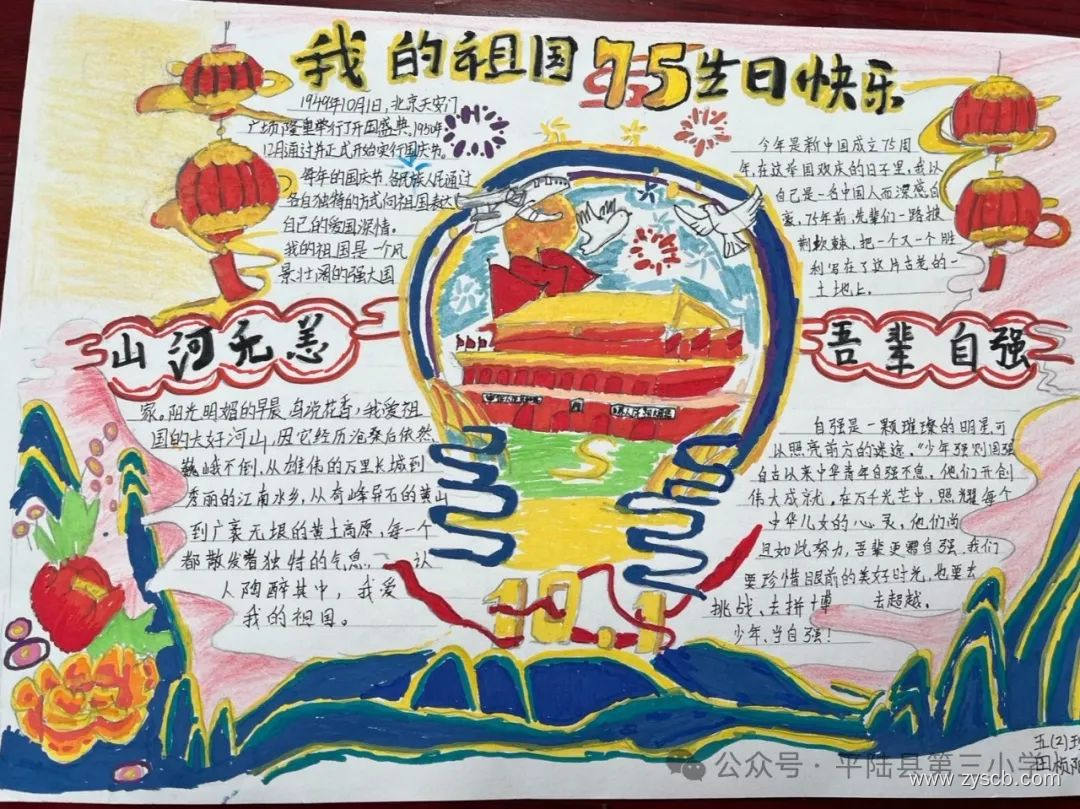 我的祖国75生日快乐
1949年10月1日,北京天安门
广场隆重举行了开国盛典。1950年
12月通过并正式开始实行国庆节。
每年的国庆节,各民族人民通过
各自独特的方式向祖国表达
自己的爱国深情。
我的祖国是一个风
景壮阔的强大国
今年是新中国成立75周
年,在这举国欢庆的日子里,我以
自己是一名中国人而深感自
豪,75年前,先辈们一路披
荆斩棘,把一个又一个胜
利写在了这片古老的一
土地上。
山河无恙
吾辈自强
家。阳光明媚的早晨,鸟说花香,我爱祖
国的大好河山,因它经历沧桑后依然
巍峨不倒,从雄伟的万里长城到
秀丽的江南水乡,从奇峰异石的黄山
到广袤无垠的黄土高原,每一个
都散发着独特的气息……认
人陶醉其中,我爱
我的祖国。
自强是一颗璀璨的明星,可
以照亮前方的迷途。“少年强则国强
自古以来中华青年自强不息。他们开创
伟大成就。在万千光芒中,照耀每个
中华儿女的心灵,他们尚
且如此努力,吾辈更需自强,我们
要珍惜眼前的美好时光,也要去
挑战、去拼搏 去超越。
少年、当自强!
10.1
五(2)班
公众号·平陆县第三小学
www.zyscb.com